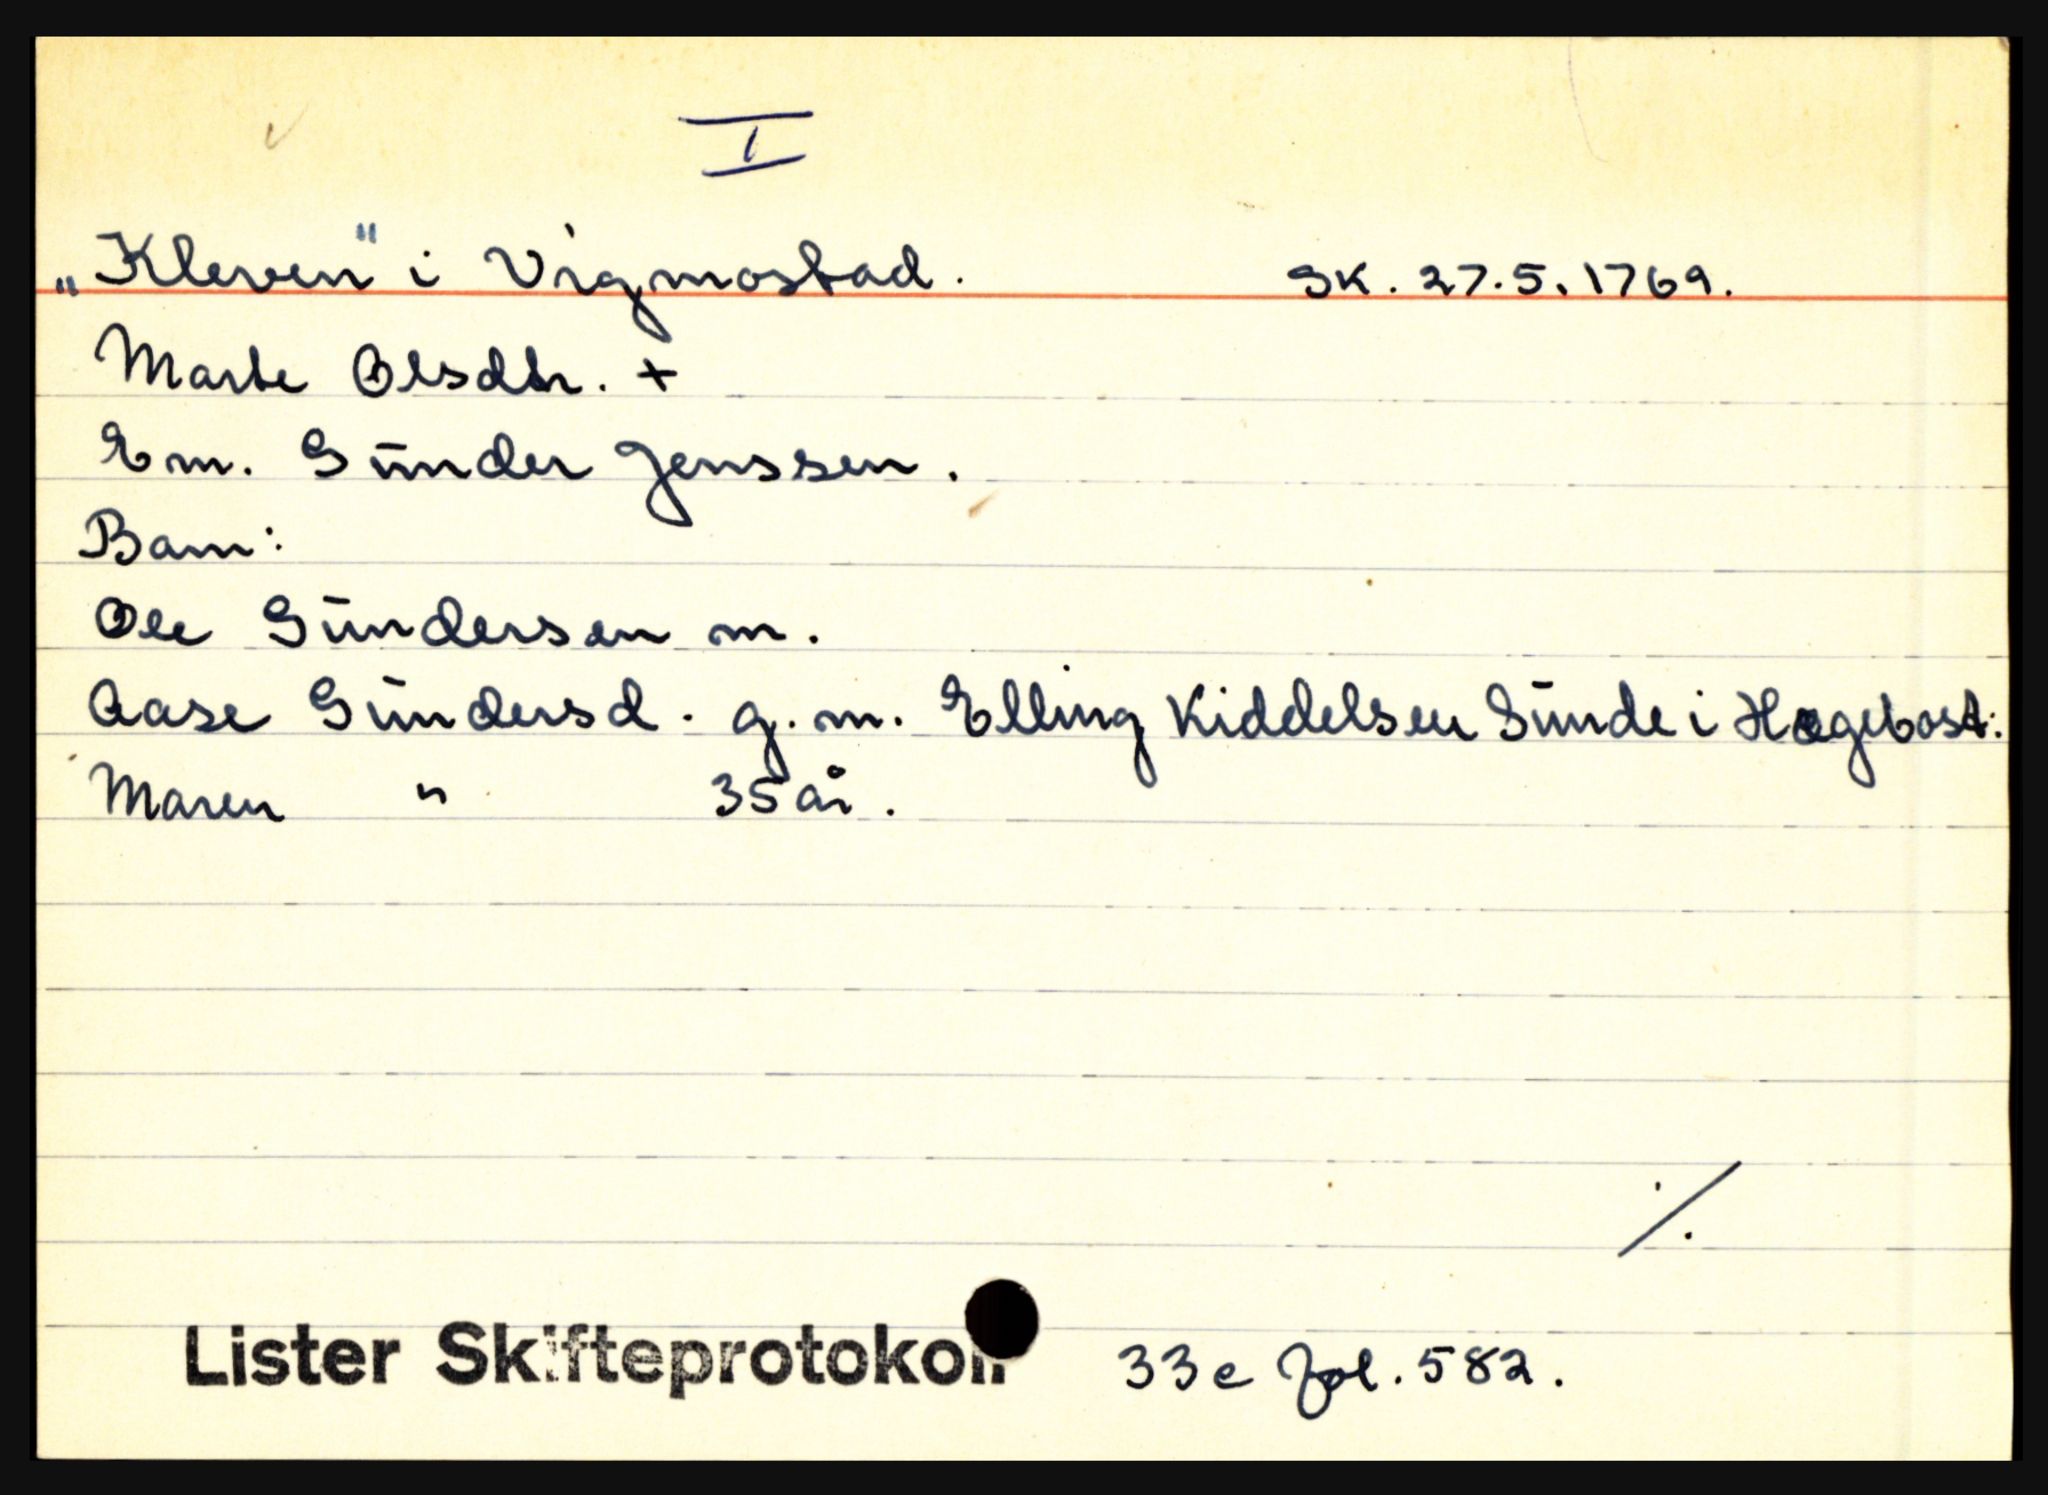 I
„Kleven" i Vigmostad. SK. 27.5.1769.
Marte Olsdtr. +
Em. Gūnder Jenssen.
Barn:
Ole Gūndersen m.
Aase Gūndersd. g.m. Elling Kiddelsen Sūnde i Hægebost:
Maren " 35 år.
./.
Lister Skifteprotokoll 33c fol. 582.